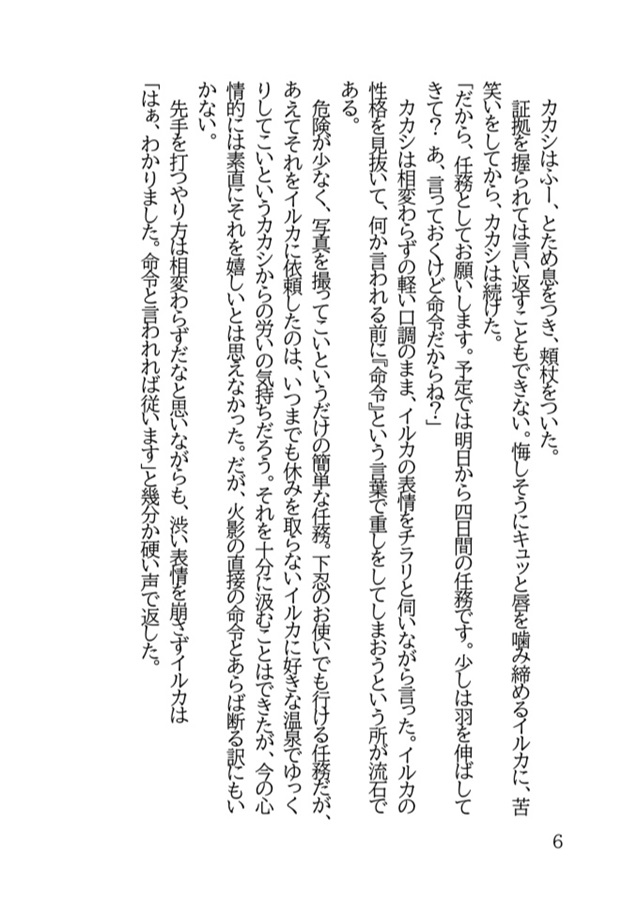 カカシはふー、とため息をつき、頬杖をついた。
証拠を握られては言い返すこともできない。悔しそうにキュッと唇を噛み締めるイルカに、苦
笑いをしてから、カカシは続けた。
「だから、任務としてお願いします。予定では明日から四日間の任務です。少しは羽を伸ばして
きて？　あ、言っておくけど命令だからね？」
カカシは相変わらずの軽い口調のまま、イルカの表情をチラリと伺いながら言った。イルカの
性格を見抜いて、何か言われる前に『命令』という言葉で重しをしてしまおうという所が流石で
ある。
危険が少なく、写真を撮ってこいというだけの簡単な任務。下忍のお使いでも行ける任務だが、
あえてそれをイルカに依頼したのは、いつまでも休みを取らないイルカに好きな温泉でゆっく
りしてこいというカカシからの労いの気持ちだろう。それを十分に汲むことはできたが、今の心
情的には素直にそれを嬉しいとは思えなかった。だが、火影の直接の命令とあらば断る訳にもい
かない。
先手を打つやり方は相変わらずだなと思いながらも、渋い表情を崩さずイルカは
「はぁ、わかりました。命令と言われれば従います」と幾分か硬い声で返した。
6